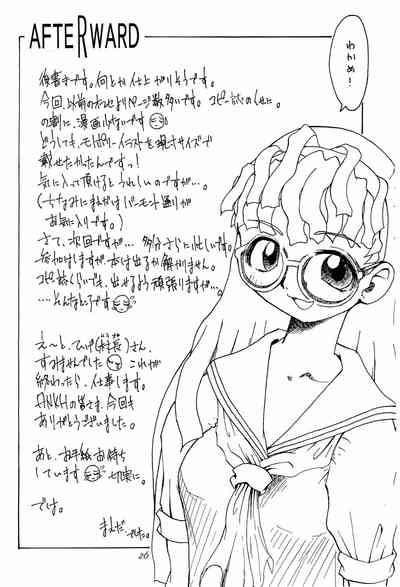 AFTERWARD
わかめ!
後書きです。何とか仕上がりそうです。
今回、以前の本よりページ数多いです。コピー誌のくせに。
の割に、漫画少ないです
どうしても、イラストを現寸サイズで
載せたかったんですっ!
気に入って頂けるとうれしいのですが…。
(ちなみにまえだはバーモント通りが
お気に入りです。)
さて、次回ですが… 多分さらに忙しいです。
申し込けますが本は出るか解かりません。
コピー誌くらいでも、出せるよう頑張りますが…。
…そんなところです
え〜と、ひげ(社長)さん、
すみませんでした これが
終わったら、仕事します。
ANKHの皆さま、今回も
ありがとうございました。
あと、お手紙お待ち
しています 切実に。
では。
まえだでした。
26